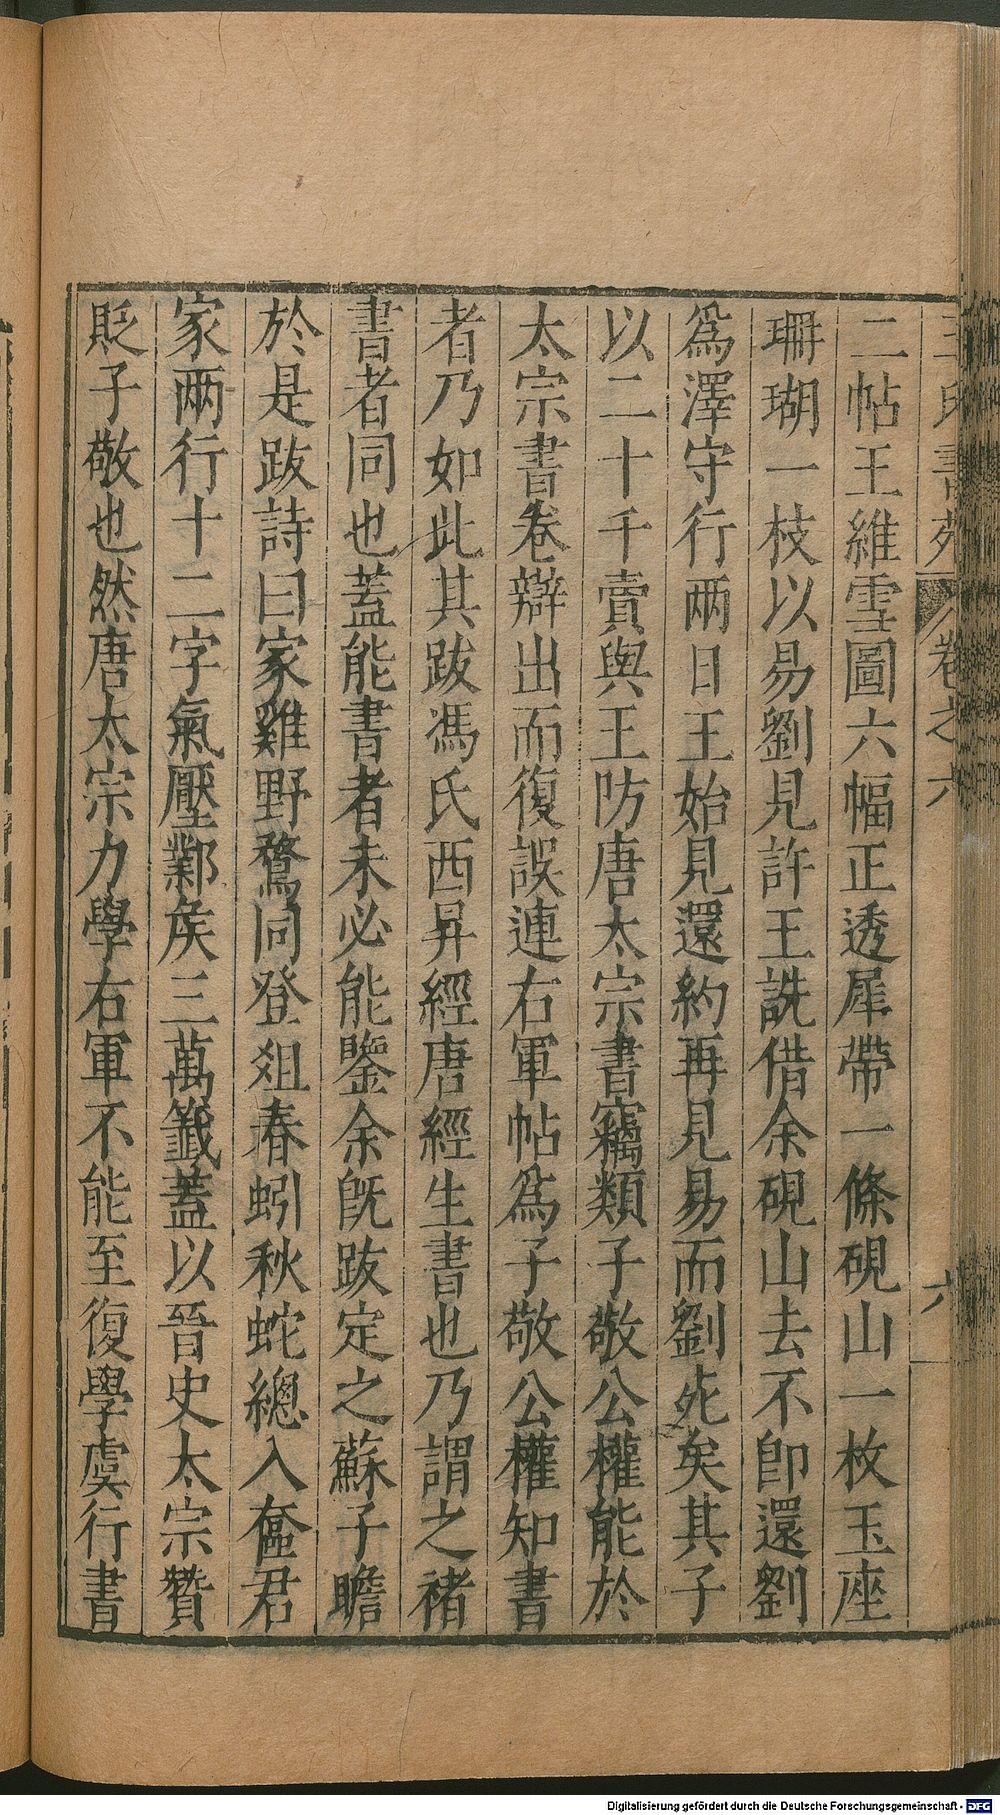 王氏書苑 卷之六 六
二帖王維雪圖六幅正透犀帶一條硯山一枚玉座
珊瑚一枝以易劉見許王詵借余硯山去不即還劉
爲澤守行兩日王始見還約再見易而劉死矣其子
以二十千賣與王防唐太宗書竊類子敬公權能於
太宗書卷辯出而復誤連右軍帖爲子敬公權知書
者乃如此其跋馮氏西昇經唐經生書也乃謂之褚
書者同也蓋能書者未必能鑒余旣跋定之蘇子瞻
於是跋詩曰家雞野鶩同登俎春蚓秋蛇總入奩君
家兩行十二字氣壓鄴侯三萬籤蓋以晉史太宗贊
貶子敬也然唐太宗力學右軍不能至復學虞行書
Digitalisierung gefördert durch die Deutsche Forschungsgemeinschaft - DFG